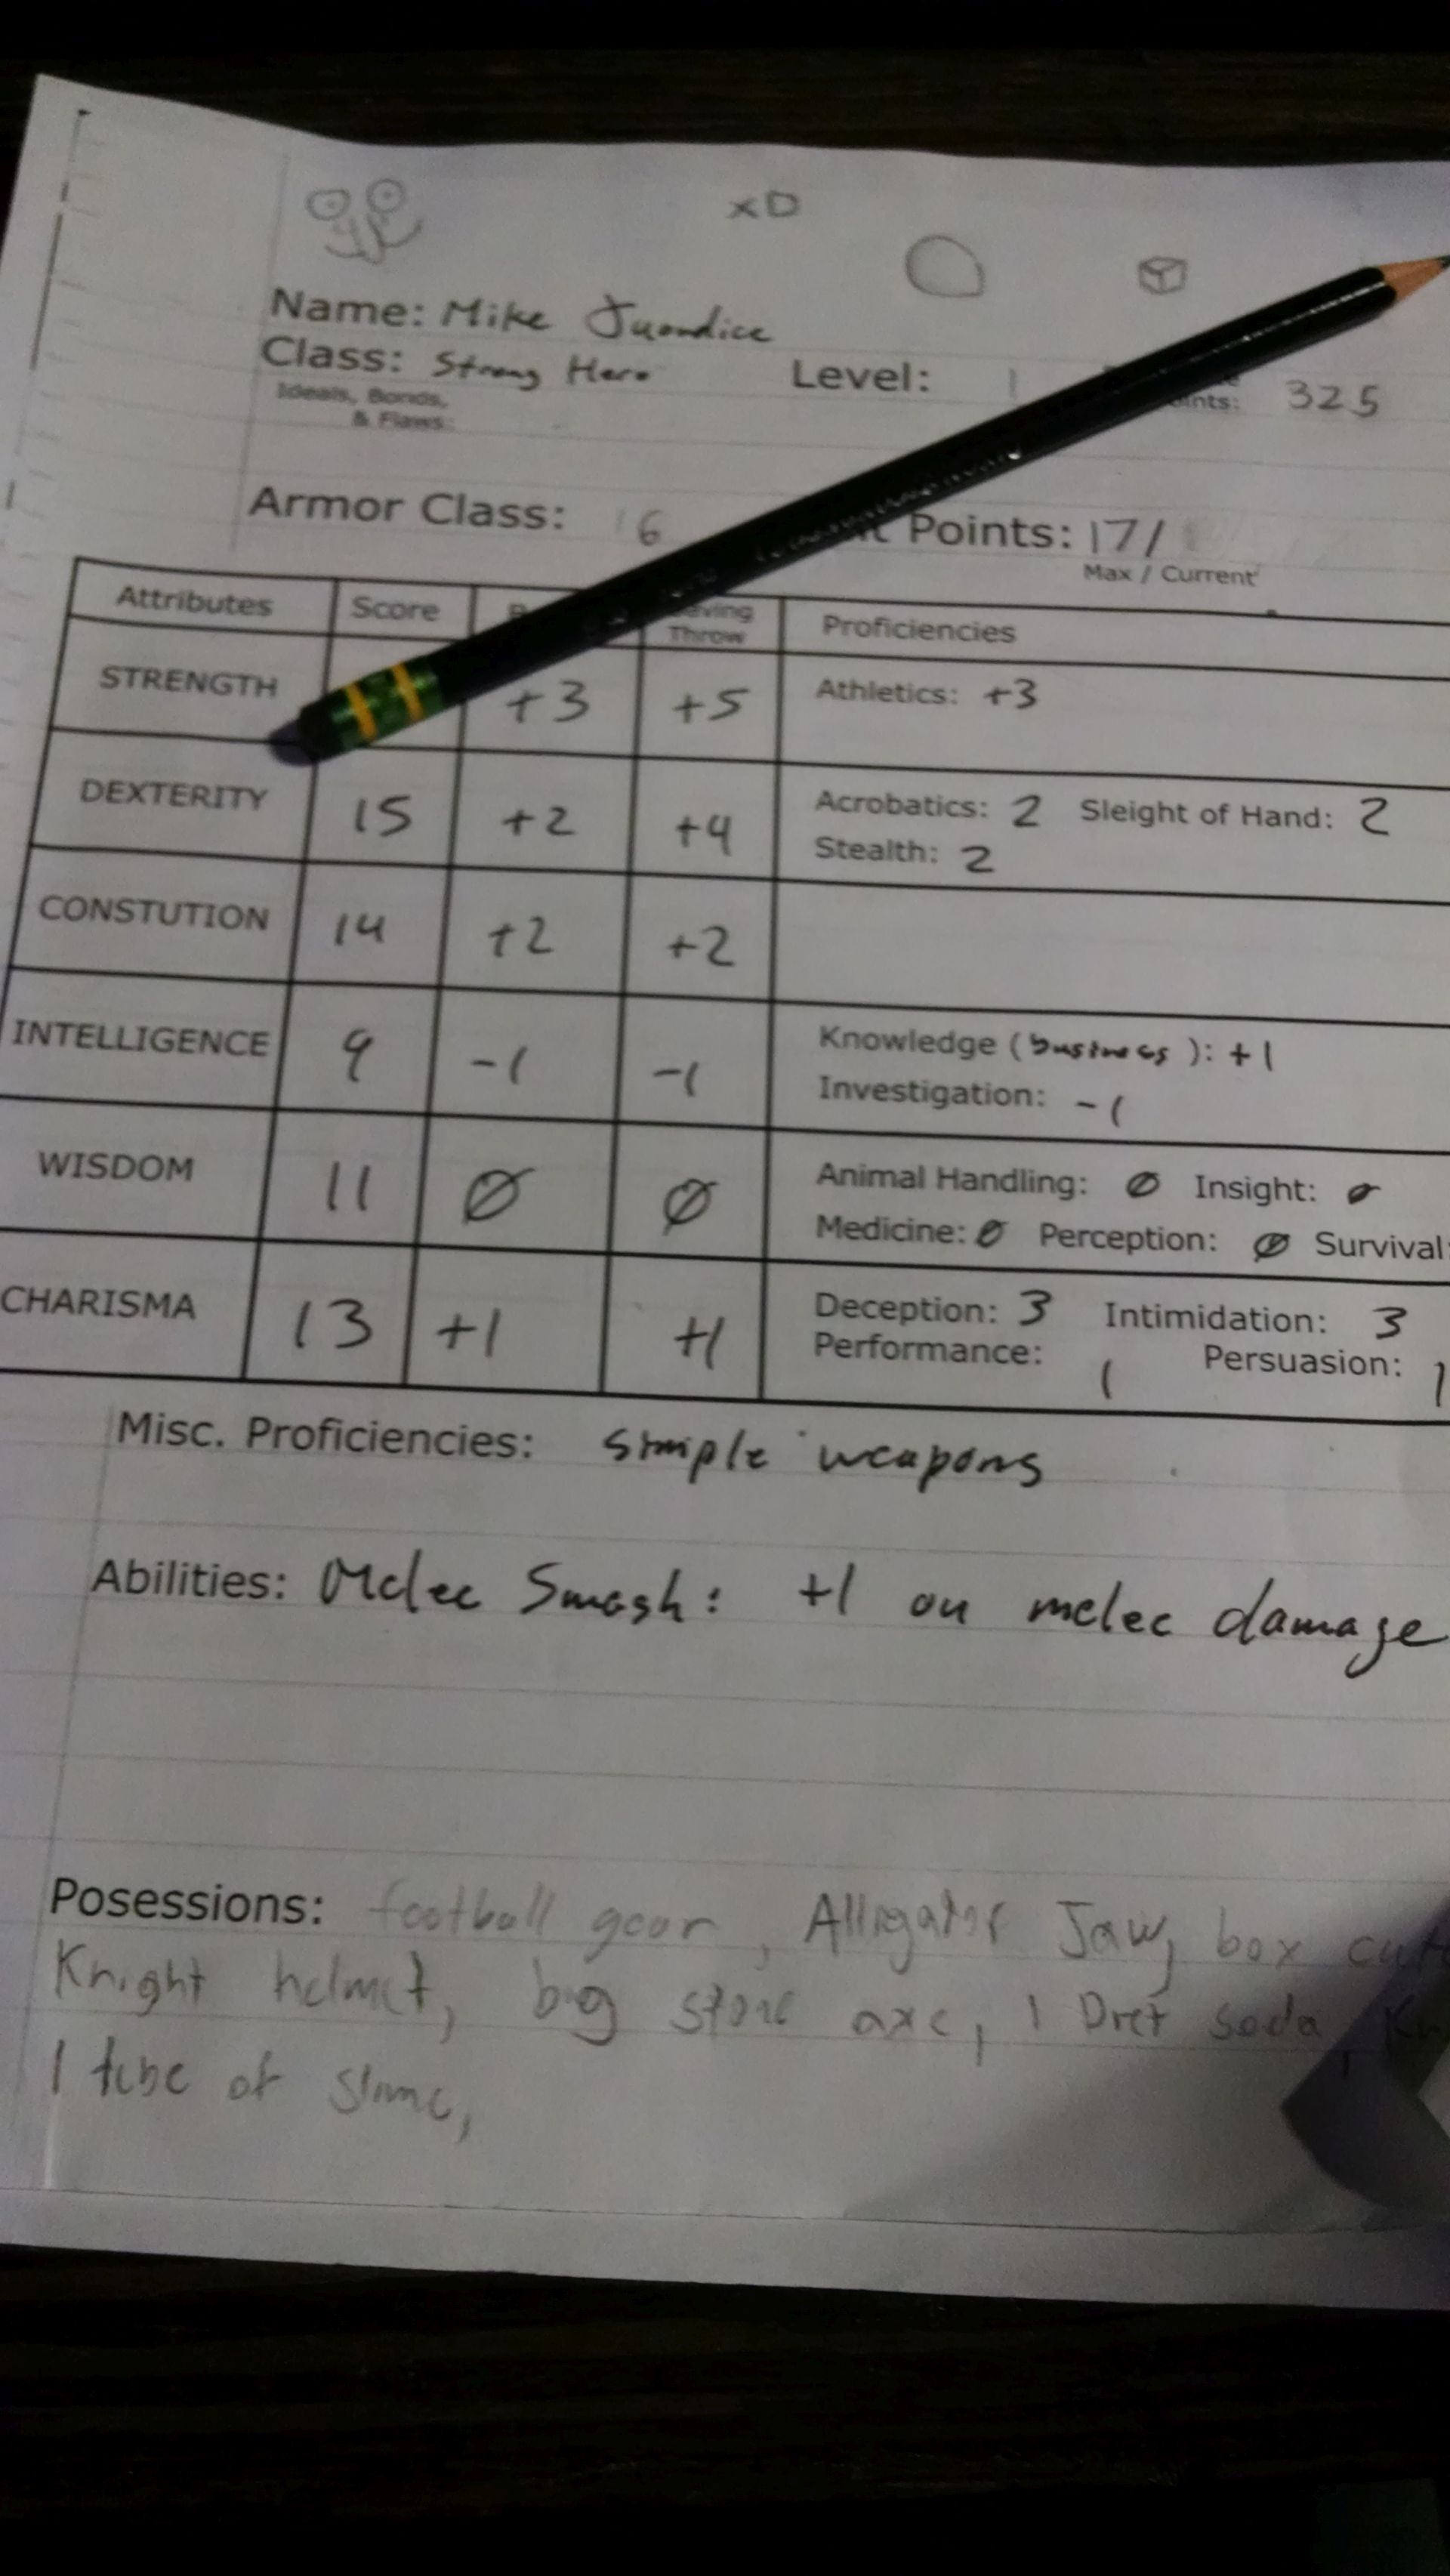 xD
Name: Mike Juandice
Class: Strong Hero Level: 1 325
Ideals, Bonds,
& Flaws:
Armor Class: 16 Points: 17/
Max / Current
Attributes Score Throw Proficiencies
STRENGTH +3 +5 Athletics: +3
DEXTERITY 15 +2 +4 Acrobatics: 2 Sleight of Hand: 2
Stealth: 2
CONSTUTION 14 +2 +2
INTELLIGENCE 9 -1 -1 Knowledge (business): +1
Investigation: -1
WISDOM 11 0 0 Animal Handling: 0 Insight: 0
Medicine: 0 Perception: 0 Survival:
CHARISMA 13 +1 +1 Deception: 3 Intimidation: 3
Performance: 1 Persuasion: 1
Misc. Proficiencies: simple weapons
Abilities: Melee Smash: +1 on melee damage
Posessions: football gear, Alligator Jaw, box
Knight helmet, big stone axe, 1 Diet soda,
1 tube of slime,